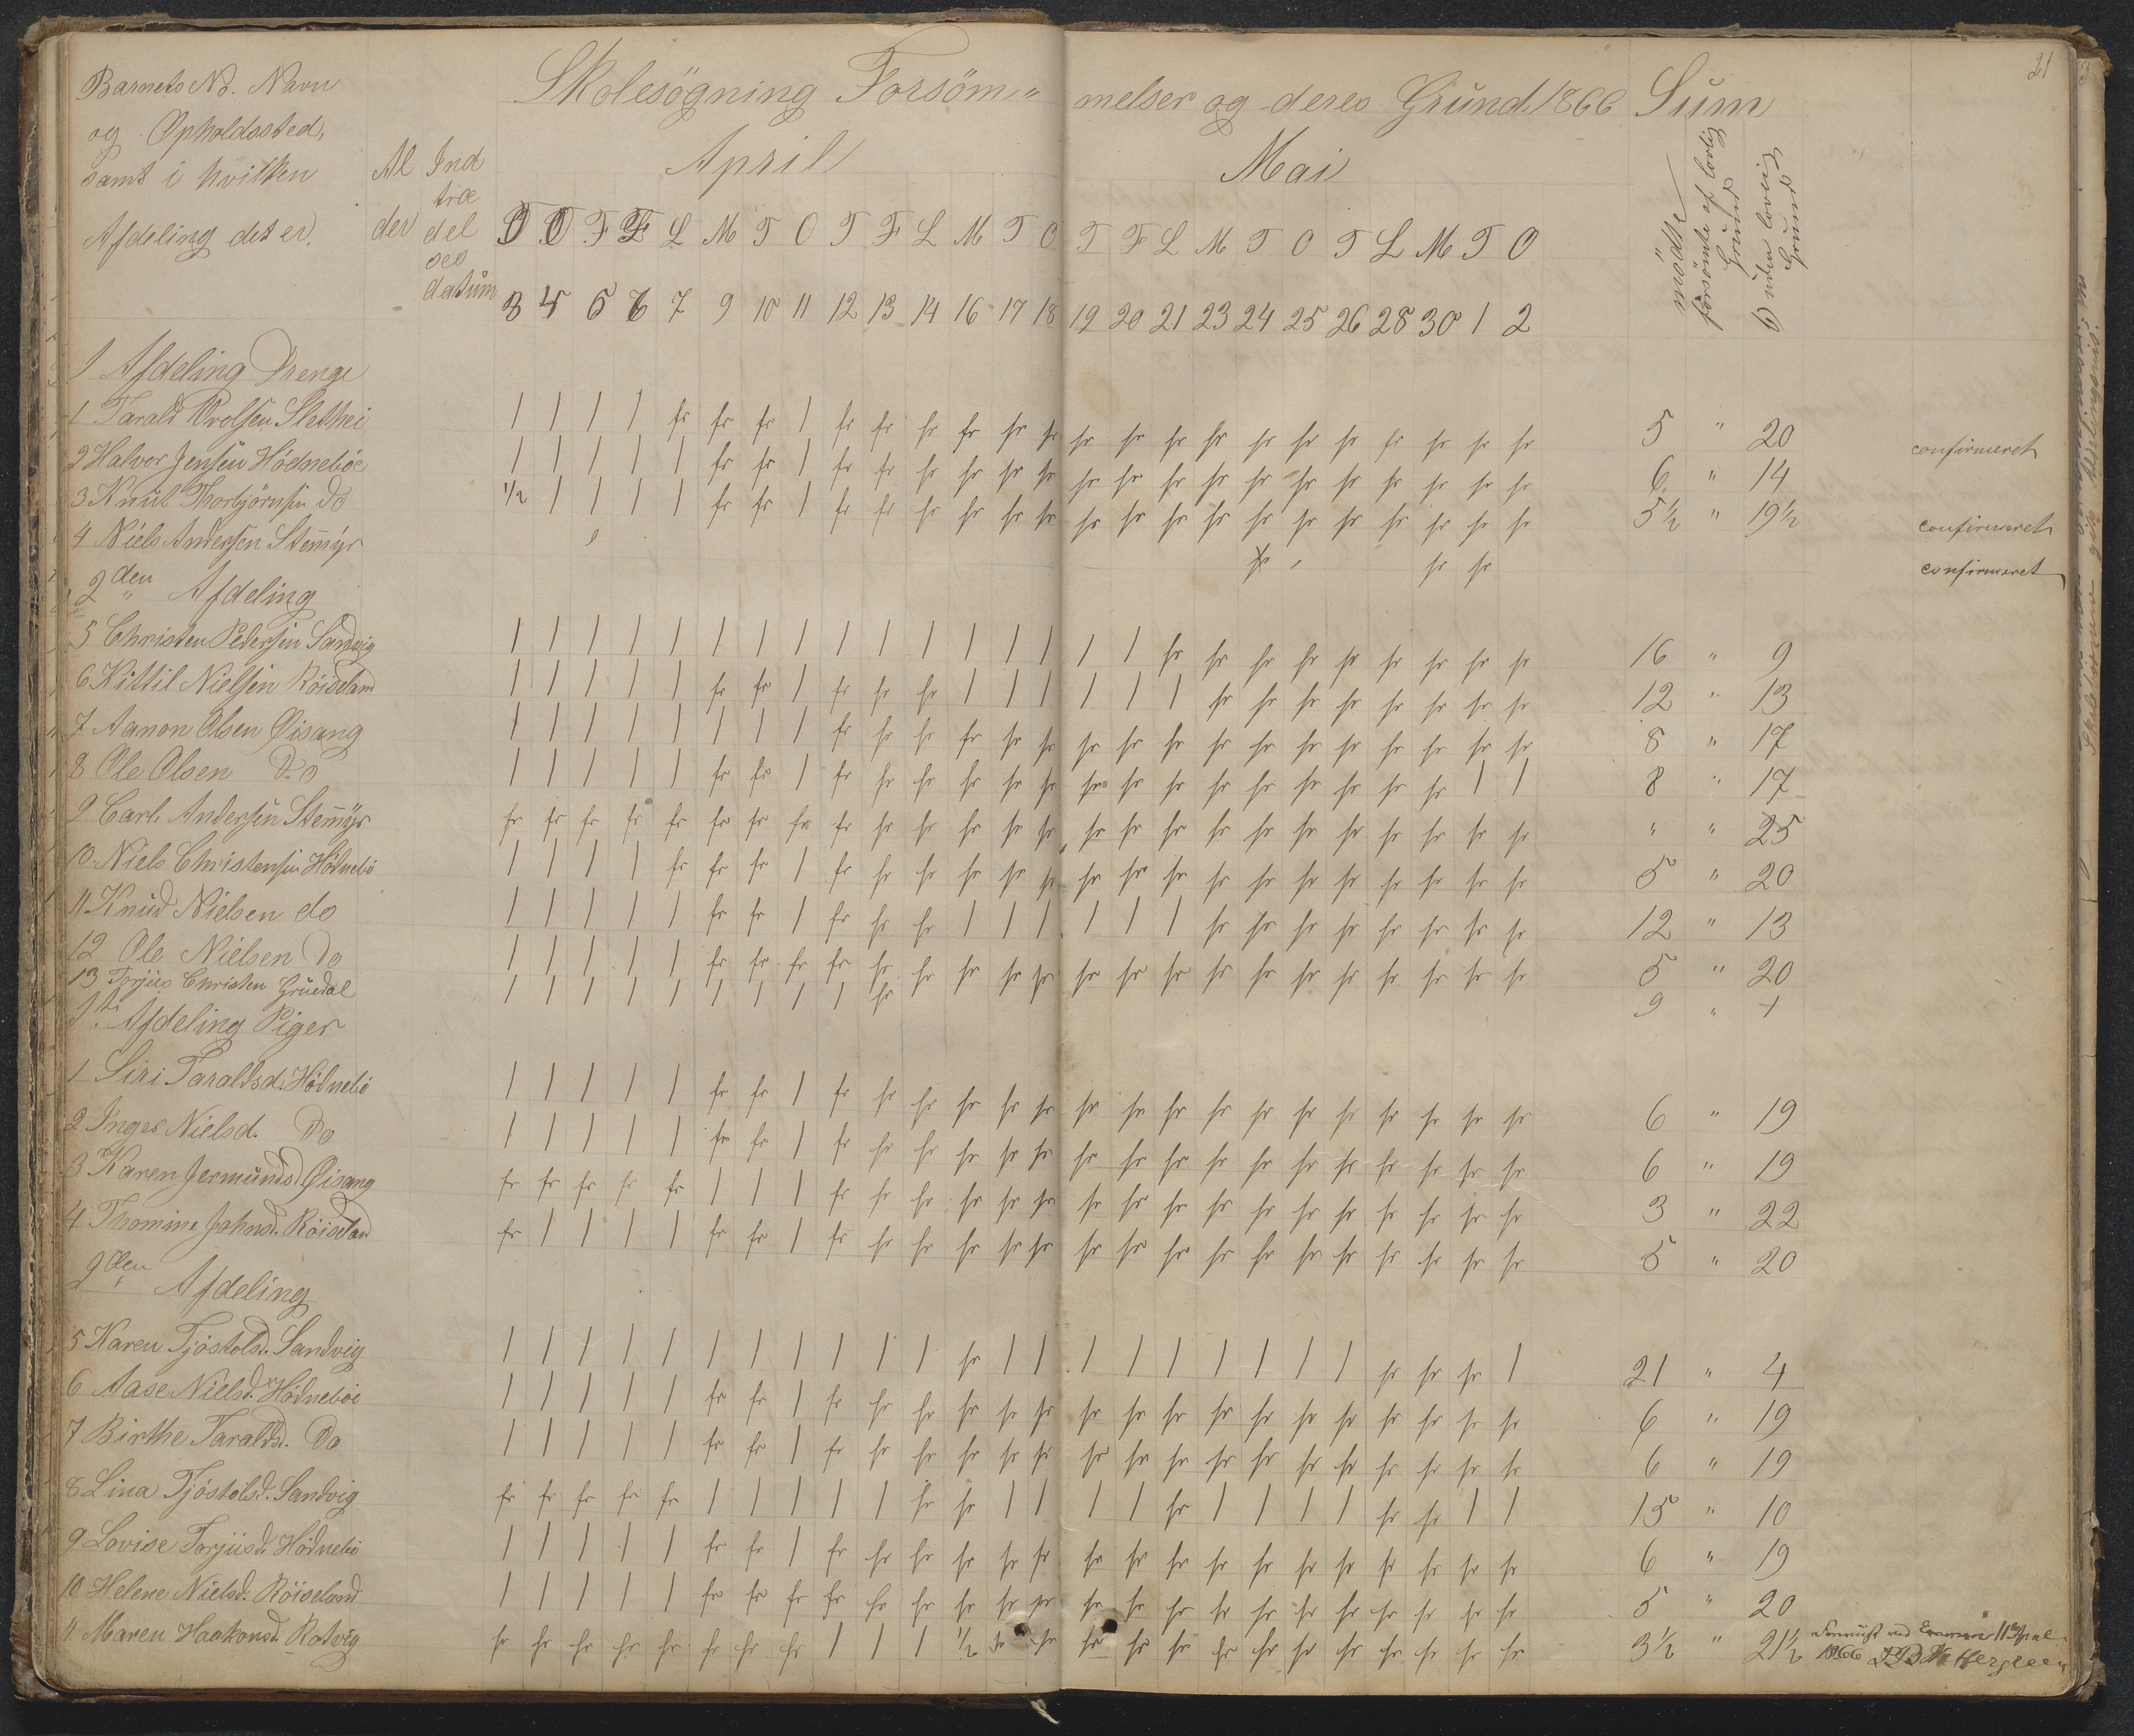 21
Skolesögning Forsöm„ melser og deres Grund 1866 Sum
Barnets No. Navn
og Opholdssted,
samt i hvilken
Afdeling det er.
Al der
Ind træ del ses datum
April
Mai
mödte
forsömte af lovlig Grund
uden lovlig Grund
T O F F L M T O T F L M T O T F L M T O T L M T O
3 4 5 6 7 9 10 11 12 13 14 16 17 18 19 20 21 23 24 25 26 28 30 1 2
1 Afdeling Drenge
1 Tarald Slethei | | | | fr fr fr | fr fr fr fr fr fr fr fr fr fr fr fr fr fr fr fr fr 5 " 20 confirmeret
2 Halvor Jensen Hödneböe | | | | | fr fr | fr fr fr fr fr fr fr fr fr fr fr fr fr fr fr fr fr 6 " 14
3 Knut Thorbjörnsen do 1/2 | | | | fr fr | fr fr fr fr fr fr fr fr fr fr fr fr fr fr fr fr fr 5 1/2 " 19 1/2 confirmeret
4 Niels Andersen Stemyr fr fr confirmeret
2den Afdeling
5 Christen Pedersen Sandvig | | | | | | | | | | | | | | | | fr fr fr fr fr fr fr fr fr 16 " 9
6 Kittil Nielsen Röiseland | | | | | fr fr | fr fr fr | | | | | | fr fr fr fr fr fr fr fr 12 " 13
7 Aanon Olsen Öisang | | | | | | | | fr fr fr fr fr fr fr fr fr fr fr fr fr fr fr fr fr 8 " 17
8 Ole Olsen do | | | | | fr fr | fr fr fr fr fr fr fr fr fr fr fr fr fr fr fr | | 8 " 17
9 Carl Andersen Stemyr fr fr fr fr fr fr fr fr fr fr fr fr fr fr fr fr fr fr fr fr fr fr fr fr fr " " 25
10 Niels Christensen Hödnebö | | | | fr fr fr | fr fr fr fr fr fr fr fr fr fr fr fr fr fr fr fr fr 5 " 20
11 Knud Nielsen do | | | | | fr fr | fr fr fr | | | | | | fr fr fr fr fr fr fr fr 12 " 13
12 Ole Nielsen do | | | | | fr fr fr fr fr fr fr fr fr fr fr fr fr fr fr fr fr fr fr fr 5 " 20
13 Torjus Christen Gruedal | | | | | | | | | fr 9 "
1ste Afdeling Piger
1 Siri Taraldsd. Hödnebö | | | | | fr fr | fr fr fr fr fr fr fr fr fr fr fr fr fr fr fr fr fr 6 " 19
2 Inger Nielsd. Do | | | | | fr fr | fr fr fr fr fr fr fr fr fr fr fr fr fr fr fr fr fr 6 " 19
3 Karen Jermunds. Öisang fr fr fr fr fr | | | fr fr fr fr fr fr fr fr fr fr fr fr fr fr fr fr fr 3 " 22
4 Thomine Johnsd. Röiseland fr | | | | fr fr | fr fr fr fr fr fr fr fr fr fr fr fr fr fr fr fr fr 5 " 20
2den Afdeling
5 Karen Tjöstolsd. Sandvig | | | | | | | | | | | fr | | | | | | | | | fr fr fr | 21 " 4
6 Aase Nielsd. Hödneböe | | | | | fr fr | fr fr fr fr fr fr fr fr fr fr fr fr fr fr fr fr fr 6 " 19
7 Birthe Taraldsd. Do | | | | | fr fr | fr fr fr fr fr fr fr fr fr fr fr fr fr fr fr fr fr 6 " 19
8 Lina Tjöstolsd. Sandvig fr fr fr fr fr | | | | | fr fr | | | | fr | | | | fr fr | | 15 " 10
9 Lovise Torjusd. Hödnebö | | | | | fr fr | fr fr fr fr fr fr fr fr fr fr fr fr fr fr fr fr fr 6 " 19
10 Helene Nielsd. Röiseland | | | | | fr fr fr fr fr fr fr fr fr fr fr fr fr fr fr fr fr fr fr fr 5 " 20
11 Maren Haakonsd. Rotvig fr fr fr fr fr fr fr fr | | | 1/2 fr fr fr fr fr fr fr fr fr fr fr fr fr 3 1/2 " 21 1/2
ved 11
1866